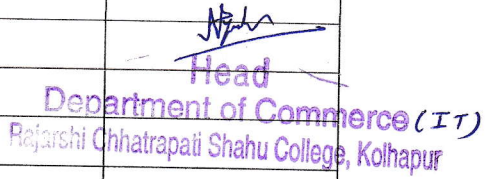 Head
Department of Commerce (IT)
Rajarshi Chhatrapati Shahu College, Kolhapur